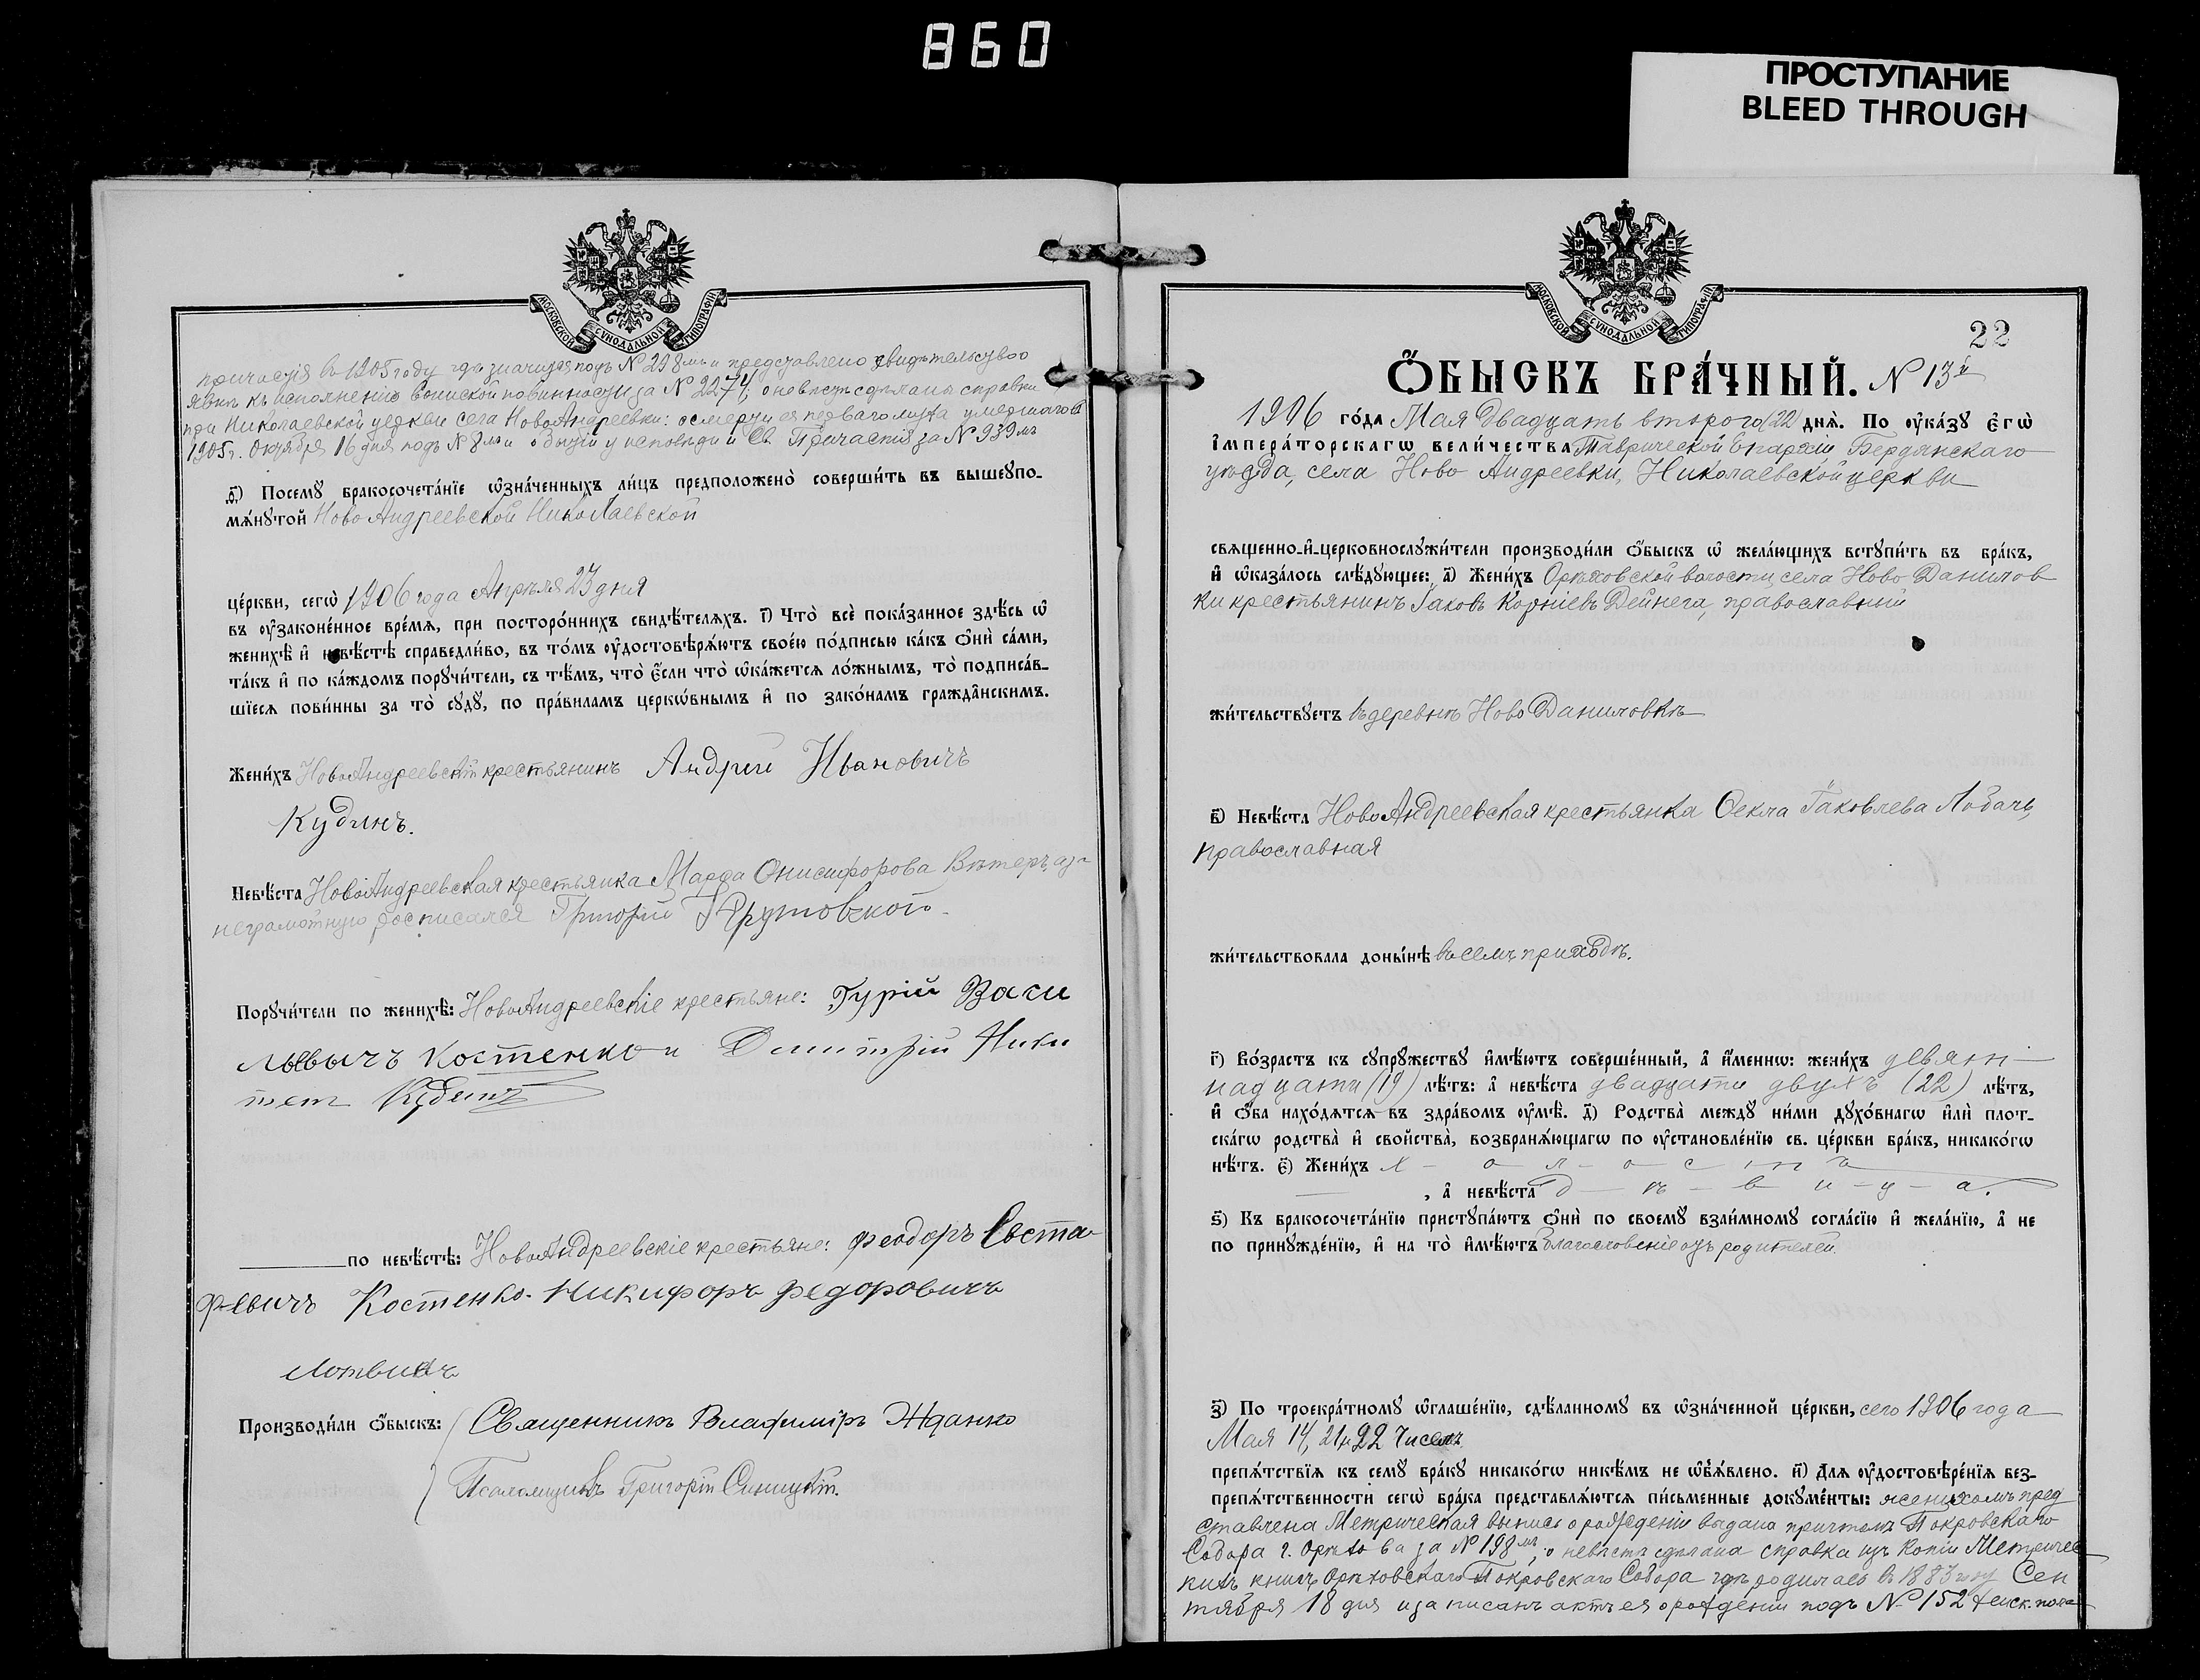 860
ПРОСТУПАНИЕ
BLEED THROUGH
МОСКОВСКОЙ СѴНОДАЛЬНОЙ ТИПОГРАФІИ
причастія въ 1905 году гдѣ значился подъ № 298мъ и представлено свидѣтельство о
явкѣ къ исполненію воинской повинности за № 2274, о невѣстѣ сдѣланы справки
при Николаевской церкви села НовоАндреевки: о смерти ея перваго мужа умершаго въ
1905 г. Октября 16 дня подъ № 8мъ и о бытіи у исповѣди и Св. Причастія за № 939мъ
д҃) Посемꙋ бракосочета́нїе ѡ҆зна́ченныхъ ли́цъ предположено̀ соверши́ть въ вышеꙋпо-
мѧ́нꙋтой Ново Андреевской Николаевской
це́ркви, сегѡ̀ 1906 года Апрѣля 23 дня
въ ᲂу҆законе́нное вре́мѧ, при посторо́ннихъ свидѣ́телѧхъ. і҃) Что̀ всѐ пока́занное здѣ́сь ѡ҆
женихѣ̀ и҆ невѣ́стѣ справедли́во, въ то́мъ ᲂу҆достовѣрѧ́ютъ свое́ю по́дписью ка́къ ѻ҆нѝ са́ми,
та́къ и҆ по ка́ждомъ порꙋчи́тели, съ тѣ́мъ, что̀ є҆́сли что̀ ѡ҆ка́жетсѧ ло́жнымъ, то̀ подписа́в-
шїесѧ пови́нны за то̀ сꙋдꙋ̀, по пра́виламъ церко́внымъ и҆ по зако́намъ гражда́нскимъ.
Жени́хъ НовоАндреевскій крестьянинъ Андрей Ивановичъ
Кудинъ.
Невѣ́ста НовоАндреевская крестьянка Марѳа Онисифорова Вѣтеръ, а за
неграмотную росписался Григорій Крутовской
Порꙋчи́тели по женихѣ̀: НовоАндреевскіе крестьяне: Гурій Васи
льевичъ Костенко и Димитрій Ники
тет Кудинъ
по невѣ́стѣ: НовоАндреевскіе крестьяне: Феодоръ Евста
фѣевичъ Костенко. Никифоръ Федоровичъ
Произво́дили ѻ҆́быскъ: Священникъ Владиміръ Жданко
Псаломщикъ Григорій Синицкій.
МОСКОВСКОЙ СѴНОДАЛЬНОЙ ТИПОГРАФІИ
22
Ѻ҆́БЫСКЪ БРА́ЧНЫЙ. № 13й
1906 го́да Мая Двадцать второго (22) днѧ̀. По ᲂу҆ка́зꙋ є҆гѡ̀
і҆мпера́торскагѡ вели́чества Таврической Епархіи, Бердянскаго
уѣзда, села Ново Андреевки, Николаевской церкви
свѧще́нно-и҆-церковнослꙋжи́тели производи́ли ѻ҆́быскъ ѡ҆ жела́ющихъ встꙋпи́ть въ бра́къ,
и҆ ѡ҆каза́лось слѣ́дꙋющее: а҃) Жени́хъ Орѣховской волости, села Ново Данилов
ки крестьянинъ Іаковъ Корніевъ Дейнега, православный
жи́тельствꙋетъ въ деревнѣ Ново Даниловкѣ
в҃) Невѣ́ста НовоАндреевская крестьянка Ѳекла Іаковлева Лобачъ,
православная
жи́тельствовала доны́нѣ въ семъ приходѣ.
г҃) Во́зрастъ къ сꙋпрꙋ́жествꙋ и҆мѣ́ютъ соверше́нный, а҆ и҆́меннѡ: жени́хъ девят-
надцати (19) лѣ́тъ: а҆ невѣ́ста двадцати двухъ (22) лѣ́тъ,
и҆ ѻ҆́ба нахо́дѧтсѧ въ здра́вомъ ᲂу҆мѣ̀. д҃) Родства̀ междꙋ̀ ни́ми дꙋхо́внагѡ и҆лѝ плот-
ска́гѡ родства̀ и҆ свойства̀, возбранѧ́ющагѡ по ᲂу҆становле́нїю св. це́ркви бра́къ, никако́гѡ
нѣ́тъ. є҃) Жени́хъ х - о - л - о - с - т - ъ
, а҆ невѣ́ста д - ѣ - в - и - ц - а.
ѕ҃) Къ бракосочета́нїю пристꙋпа́ютъ ѻ҆нѝ по своемꙋ̀ взаи́мномꙋ согла́сїю и҆ жела́нїю, а҆ не
по принꙋжде́нїю, и҆ на то̀ и҆мѣ́ютъ благословеніе отъ родителей.
з҃) По троекра́тномꙋ ѡ҆глаше́нїю, сдѣ́ланномꙋ въ ѡ҆зна́ченной це́ркви, сего 1906 года
Мая 14, 21 и 22 чиселъ
препѧ́тствїѧ къ семꙋ̀ бра́кꙋ никако́гѡ никѣ́мъ не ѡ҆б̾ѧ́влено. и҃) Длѧ ᲂу҆достовѣре́нїѧ без-
препѧ́тственности сегѡ̀ бра́ка представлѧ́ютсѧ пи́сьменные докꙋме́нты: женихомъ пред
ставлена Метрическая выпись о рожденіи выдана причтомъ Покровскаго
Собора г. Орѣхова за № 198мъ, о невѣстѣ сдѣлана справка изъ копіи Метричес
кихъ книгъ Орѣховскаго Покровскаго Собора гдѣ родилась въ 1883 году Сен
тября 18 дня и записанъ актъ ея о рожденіи подъ № 152 женск. пола